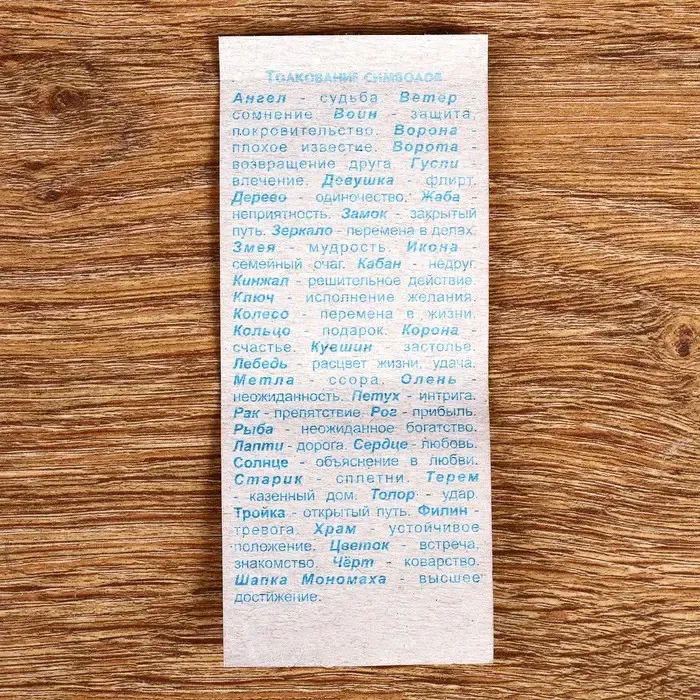 Толкования символов
Ангел - судьба. Ветер -
сомнение. Воин - защита,
покровительство. Ворона -
плохое известие. Ворота -
возвращение друга. Гусли -
влечение. Девушка - флирт.
Дерево - одиночество. Жаба -
неприятность. Замок - закрытый
путь. Зеркало - перемена в делах.
Змея - мудрость. Икона -
семейный очаг. Кабан - недруг.
Кинжал - решительное действие.
Ключ - исполнение желания.
Колесо - перемена в жизни.
Кольцо - подарок. Корона -
счастье. Кувшин - застолье.
Лебедь - расцвет жизни, удача.
Метла - ссора. Олень -
неожиданность. Петух - интрига.
Рак - препятствие. Рог - прибыль.
Рыба - неожиданное богатство.
Лапти - дорога. Сердце - любовь.
Солнце - объяснение в любви.
Старик - сплетни. Терем
- казенный дом. Топор - удар.
Тройка - открытый путь. Филин -
тревога. Храм - устойчивое
положение. Цветок - встреча,
знакомство. Чёрт - коварство.
Шапка Мономаха - высшее
достижение.